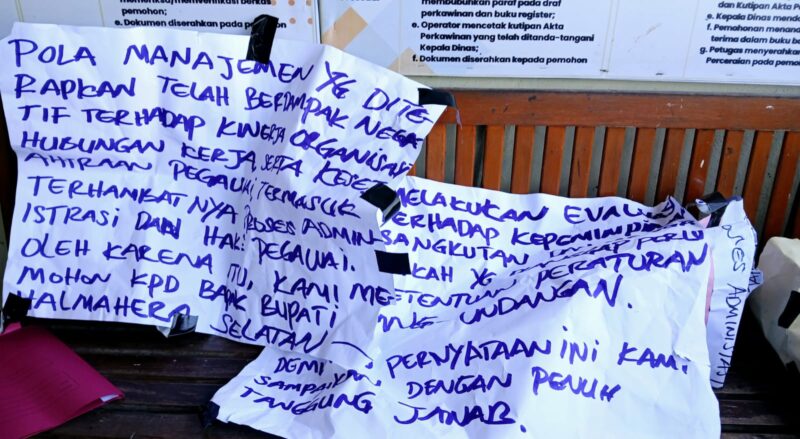 pemohon;
e. Dokumen diserahkan pada pemohon
membubuhkan paraf pada draf
perkawinan dan buku register;
e. Operator mencetak kutipan Akta
Perkawinan yang telah ditanda-tangani
Kepala Dinas;
f. Dokumen diserahkan kepada pemohon
dan Kutipan Akta
e. Kepala Dinas
f. Pemohonan
terima dalam buku
g. Petugas menyerahkan
Perceraian pada
POLA MANAJEMEN YG DITE
RAPKAN TELAH BERDAMPAK NEGA
TIF TERHADAP KINERJA ORGANISASI
HUBUNGAN KERJA, SERTA KESEJ
AHTRAAN PEGAWAI, TERMASUK
TERHAMBATNYA PROSES ADMIN-
ISTRASI DAN HAK PEGAWAI.
OLEH KARENA ITU, KAMI ME
MOHON KPD BAPAK BUPATI
HALMAHERA SELATAN
MELAKUKAN
TERHADAP
KAH YG PERLU
PERATURAN
UNDANGAN.
DEMI PERNYATAAN INI KAMI
DENGAN PENUH
TANGGUNG JAWAB.